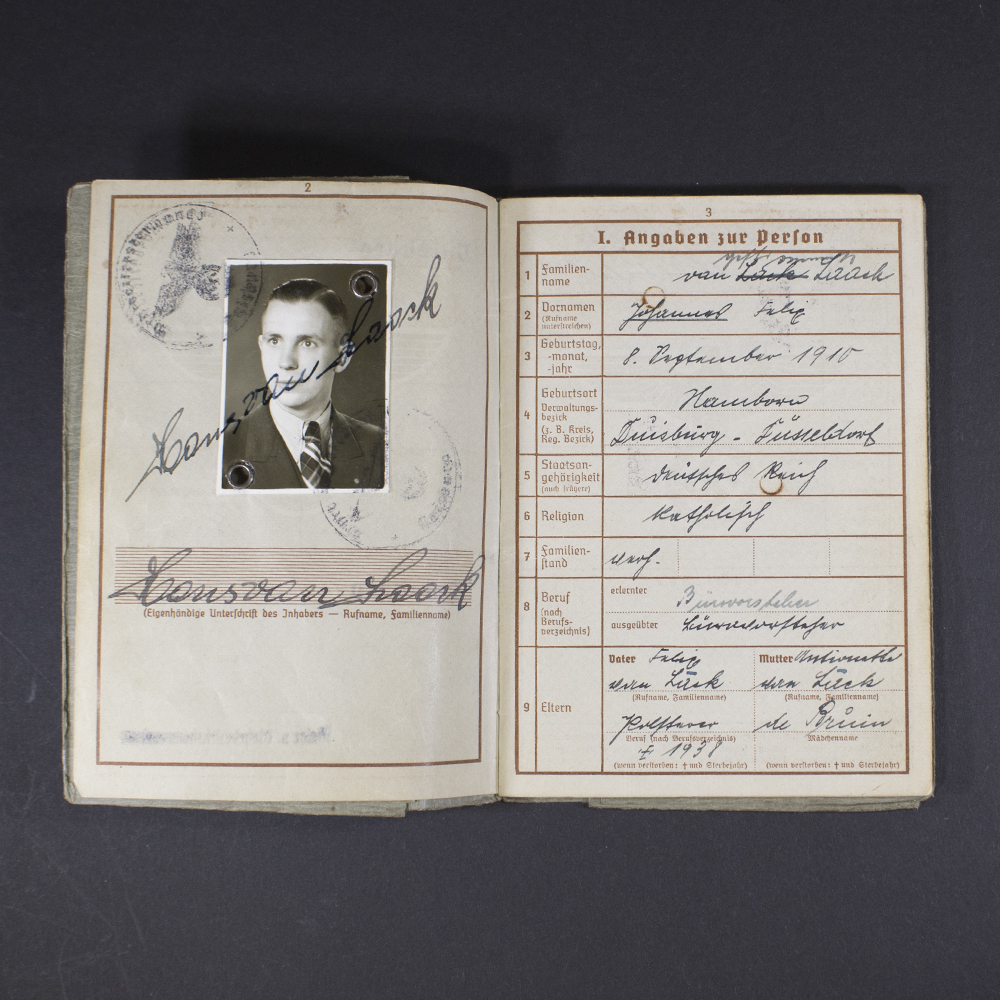 2
Hans van Laack
Hans van Laack
(Eigenhändige Unterschrift des Inhabers — Rufname, Familienname)
3
I. Angaben zur Person
1 Familien-
name
van Läck Laack
2 Vornamen
(Rufname
unterstreichen)
Johannes Felix
3 Geburtstag,
-monat,
-jahr
8. September 1910
4 Geburtsort
Verwaltungs-
bezirk
(z. B. Kreis,
Reg. Bezirk)
Hamborn
Duisburg - Düsseldorf
5 Staatsan-
gehörigkeit
(auch frühere)
deutsches Reich
6 Religion
katholisch
7 Familien-
stand
verh.
8 Beruf
(nach
Berufs-
verzeichnis)
erlernter Bürovorsteher
ausgeübter Bürovorsteher
9 Eltern
Vater Felix
van Läck
(Rufname, Familienname)
Polsterer
Beruf (nach Berufsverzeichnis)
† 1938
(wenn verstorben: † und Sterbejahr)
Mutter Antionette
van Läck
(Rufname, Familienname)
de Bruin
Mädchenname
(wenn verstorben: † und Sterbejahr)